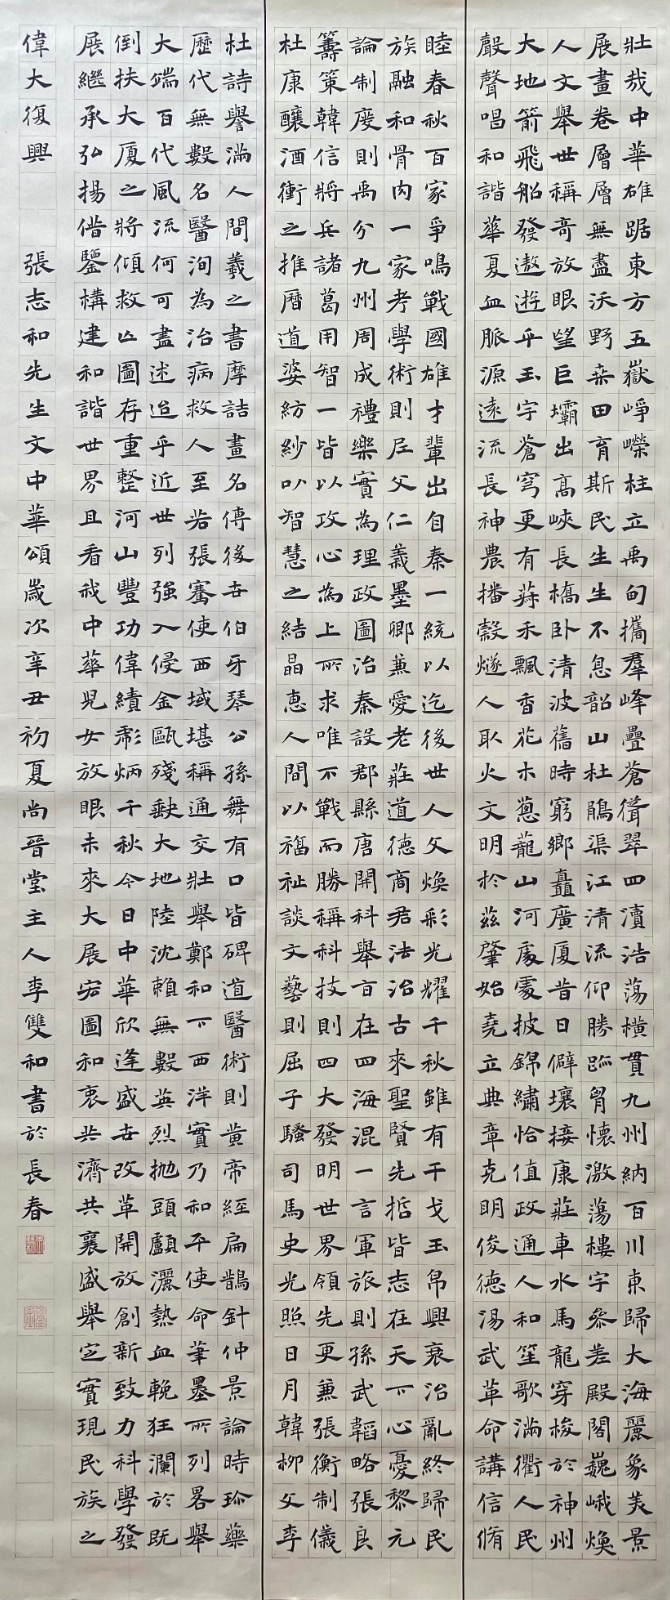 壯哉中華雄踞東方五嶽崢嶸柱立禹甸攜羣峰疊蒼聳翠四瀆浩蕩橫貫九州納百川東歸大海麗象美景
展畫卷層層無盡沃野桑田育斯民生生不息韶山杜鵑渠江清流仰勝跡胷懷激蕩樓宇參差殿閣巍峨煥
人文舉世稱奇放眼望巨壩出高峽長橋臥清波舊時窮鄉矗廣厦昔日僻壤接康莊車水馬龍穿梭於神州
大地箭飛船發遨遊乎玉宇蒼穹更有蒔禾飄香花木蔥蘢山河處處披錦繡恰值政通人和笙歌滿衢人民
聲唱和諧華夏血脈源遠流長神農播穀燧人取火文明於茲肇始堯立典章克明俊德湯武革命講信脩
睦春秋百家爭鳴戰國雄才輩出自秦一統以迄後世人文煥彩光耀千秋雖有干戈玉帛興衰治亂終歸民
族融和骨肉一家考學術則尼父仁義墨卿兼愛老莊道德商君法治古來聖賢先哲皆志在天下心憂黎元
論制度則禹分九州周成禮樂實為理政圖治秦設郡縣唐開科舉旨在四海混一言軍旅則孫武韜略張良
籌策韓信將兵諸葛用智一皆以攻心為上所求唯不戰而勝稱科技則四大發明世界領先更兼張衡制儀
杜康釀酒衝之推曆道婆紡紗以智慧之結晶惠人間以福祉談文藝則屈子騷司馬史光照日月韓柳文李
杜詩譽滿人間羲之書摩詰畫名傳後世伯牙琴公孫舞有口皆碑道醫術則黃帝經扁鵲針仲景論時珍藥
歷代無數名醫洵為治病救人至若張騫使西域堪稱通交壯舉鄭和下西洋實乃和平使命筆墨所列畧舉
大端百代風流何可盡述迨乎近世列強入侵金甌殘缺大地陸沈賴無數英烈拋頭顱灑熱血輓狂瀾於既
倒扶大厦之將傾救亾圖存重整河山豐功偉績彪炳千秋今日中華欣逢盛世改革開放創新致力科學發
展繼承弘揚借鑒構建和諧世界且看我中華兒女放眼未來大展宏圖和衷共濟共襄盛舉定實現民族之
偉大復興 張志和先生文中華頌歲次辛丑初夏尚晉堂主人李雙和書於長春